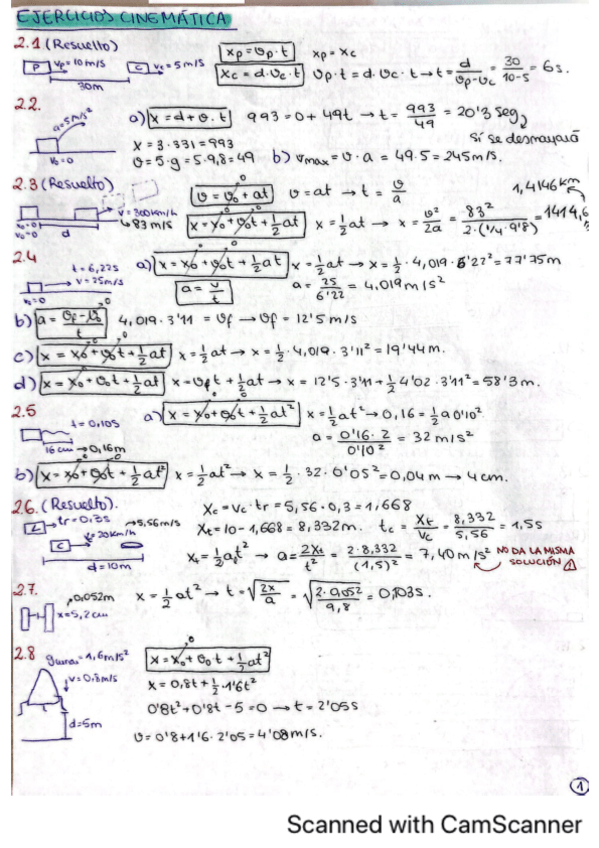 EJERCICIOS CINEMÁTICA
2.1 (Resuelto)
P vp=10m/s C vc=5m/s
30m
xp=vp·t xp=xc
xc=d·vc·t vp·t=d·vc·t→t=d/(vp-vc)=30/(10-5)=6s.
2.2.
a=5m/s²
v0=0
a) x=d+v.t 993=0+49t→t=993/49=20'3 seg,
Sí se desmayará
x=3·331=993
v=5·g=5·9,8=49 b) vmax=v·a=49·5=245m/s.
2.3 (Resuelto)
v=300km/h
↳83 m/s
d
v=v0+at v=at→t=v/a
1,4146km
x=x0+v0t+1/2at x=1/2at→x=v²/2a=83²/(2·(1/4·9'8))=1414,6
2.4
t=6,22s
v=25m/s
v0=0
a) x=x0+v0t+1/2at x=1/2at→x=1/2·4,019·6'22²=77'75m
a=v/t a=25/6'22=4,019m/s²
b) a=(vf-v0)/t 4,019·3'11=vf→vf=12'5m/s
c) x=x0+v0t+1/2at x=1/2at→x=1/2·4,019·3'11²=19'44m.
d) x=x0+v0t+1/2at x=v0t+1/2at→x=12'5·3'11+1/2 4'02·3'11²=58'3m.
2.5
t=0,10s
16cm→0,16m
a) x=x0+v0t+1/2at² x=1/2at²→0,16=1/2a0'10²
a=0'16·2/0'10²=32m/s²
b) x=x0+v0t+1/2at² x=1/2at²→x=1/2·32·0'05²=0,04m→4cm.
2.6. (Resuelto).
L tr=0,3s →5,56m/s
C v=20km/h
d=10m
Xc=vc·tr=5,56·0,3=1,668
Xt=10-1,668=8,332m. tc=Xt/Vc=8,332/5,56=1,5s
Xt=1/2at²→a=2Xt/t²=2·8,332/(1,5)²=7,40m/s² NO DA LA MISMA
SOLUCIÓN
2.7.
0,052m
x=5,2cm
x=1/2at²→t=√(2x/a)=√(2·0,052/9,8)=0,103s.
2.8
gluna=1,6m/s²
v=0,8m/s
d=5m
x=x0+v0t+1/2at²
x=0,8t+1/2·1'6t²
0'8t²+0'8t-5=0→t=2'05s
v=0'8+1'6·2'05=4'08m/s.
1
Scanned with CamScanner